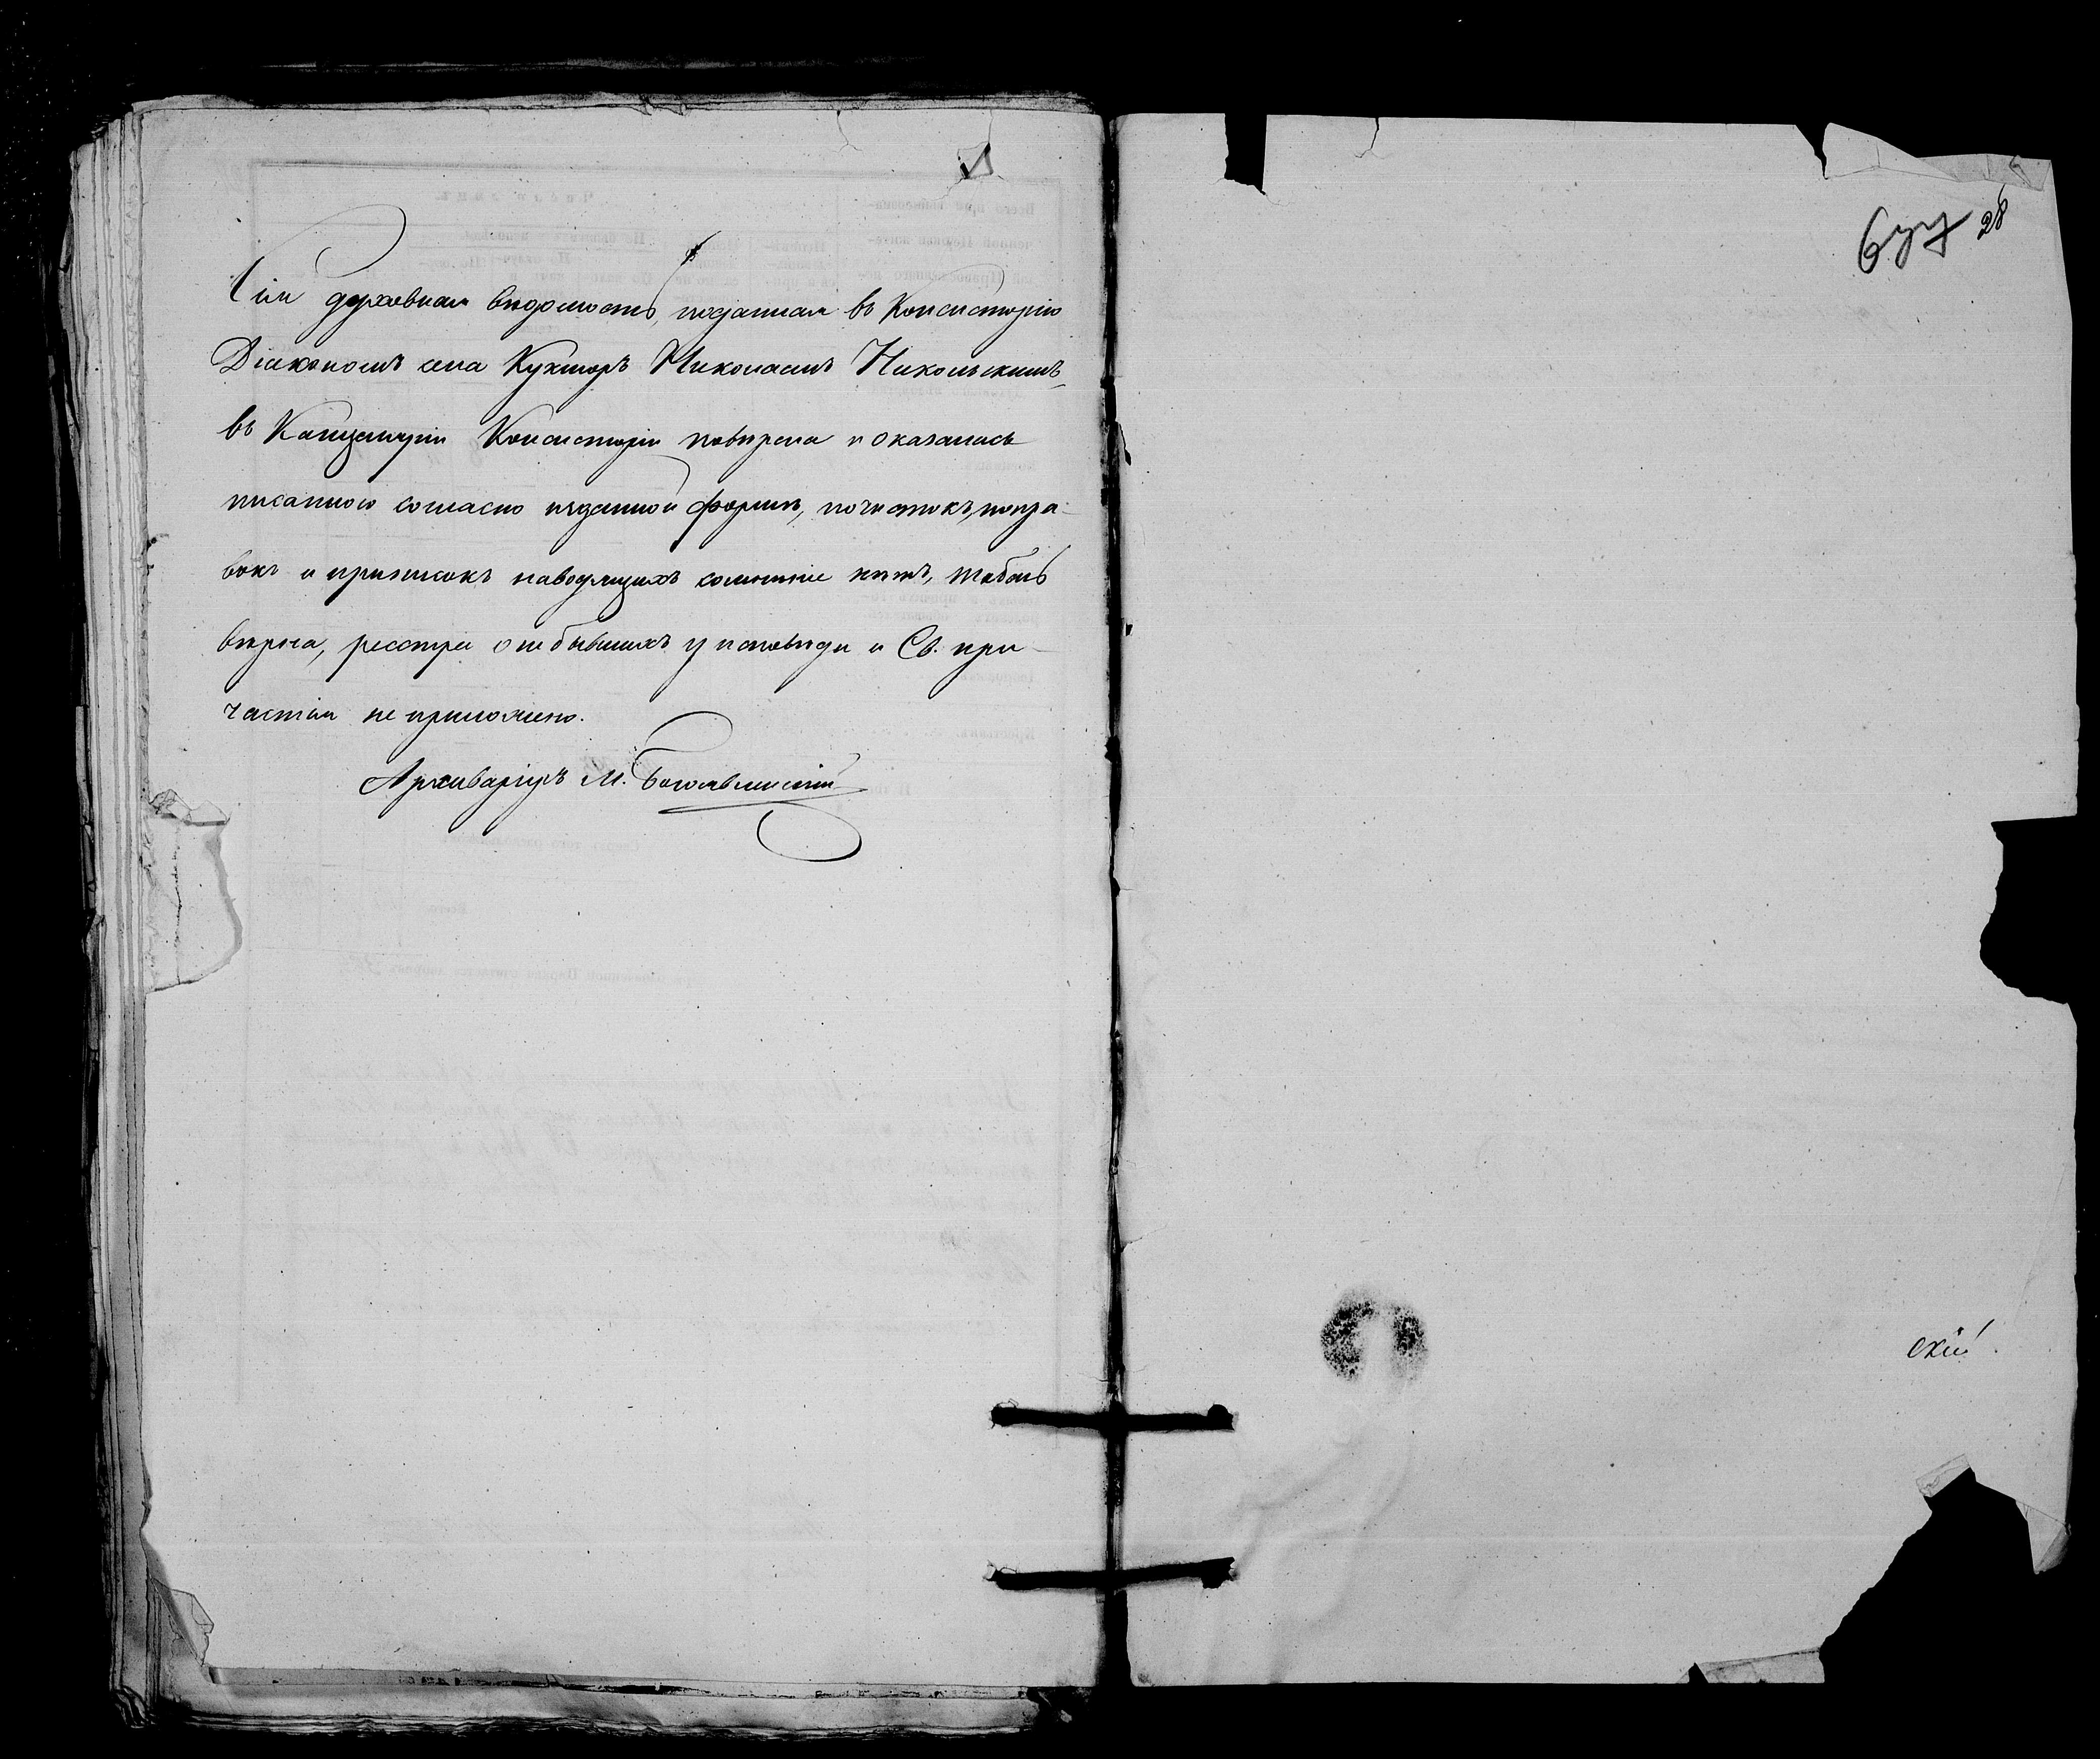 Сія духовная вѣдомость, поданная въ Консисторію
Діакономъ села Кухморъ Николаемъ Никольскимъ,
въ Канцеляріи Консисторіи повѣрена и оказалась
писанною согласно изданной формы, почистокъ, попра-
вокъ и приписокъ наводящихъ сомнѣніе нѣтъ, табель
вѣрна, реестра о небывшихъ у исповѣди и Св. при-
частія не приложено.
Архиваріусъ М. Богоявленскій
677
28
скій.